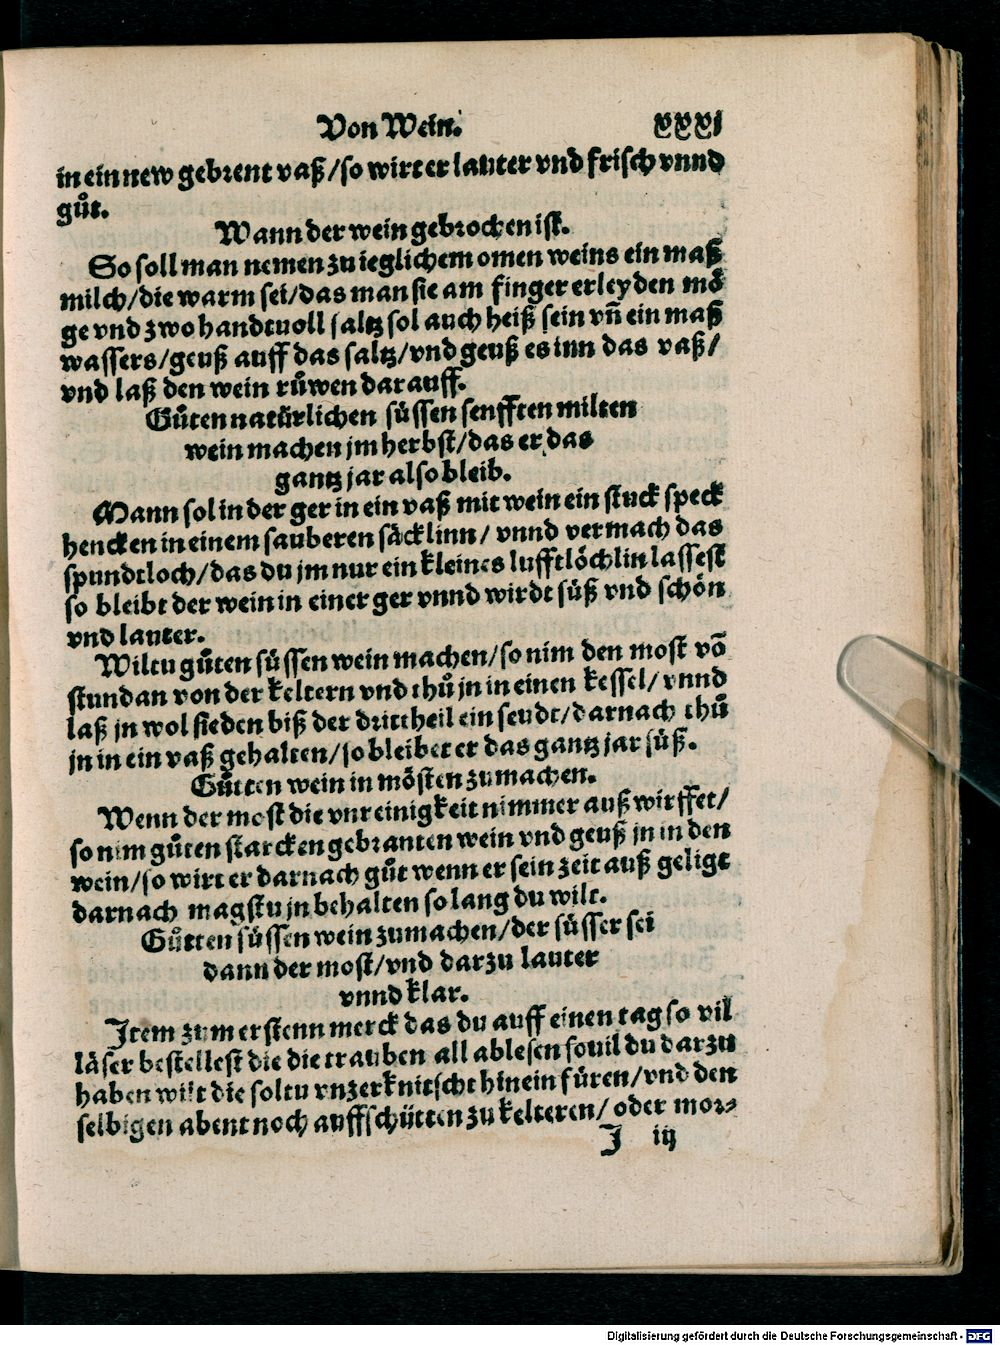 Von Wein. xxxi
in ein new gebrent vaß/so wirt er lauter vnd frisch vnnd
gůt.
Wann der wein gebrochen ist.
So soll man nemen zu ieglichem omen weins ein maß
milch/die warm sei/das man sie am finger erleyden mö
ge vnd zwo handtuoll saltz sol auch heiß sein vñ ein maß
wassers/geuß auff das saltz/vnd geuß es inn das vaß/
vnd laß den wein růwen darauff.
Gůten natürlichen süssen senfften milten
wein machen jm herbst/das er das
gantz jar also bleib.
Mann sol in der ger in ein vaß mit wein ein stuck speck
hencken in einem sauberen säcklinn/ vnnd vermach das
spundtloch/das du jm nur ein kleines lufftlöchlin lassest
so bleibt der wein in einer ger vnnd wirdt süß vnd schön
vnd lauter.
Wiltu gůten süssen wein machen/so nim den most võ
stundan von der keltern vnd thů jn in einen kessel/vnnd
laß jn wol sieden biß der drittheil ein seudt/darnach thů
jn in ein vaß gehalten/so bleibet er das gantz jar süß.
Gůtten wein in mösten zumachen.
Wenn der most die vnreinigkeit nimmer auß wirffet/
so nim gůten starcken gebranten wein vnd geuß jn in den
wein/so wirt er darnach gůt wenn er sein zeit auß geligt
darnach magstu jn behalten so lang du wilt.
Gůtten süssen wein zumachen/der süsser sei
dann der most/vnd darzu lauter
vnnd klar.
Item zum erstenn merck das du auff einen tag so vil
läser bestellest die die trauben all ablesen souil du darzu
haben wilt die soltu vnzerknitscht hinein füren/vnd den
selbigen abent noch auffschütten zu kelteren/oder mor⸗
J iij
Digitalisierung gefördert durch die Deutsche Forschungsgemeinschaft - DFG